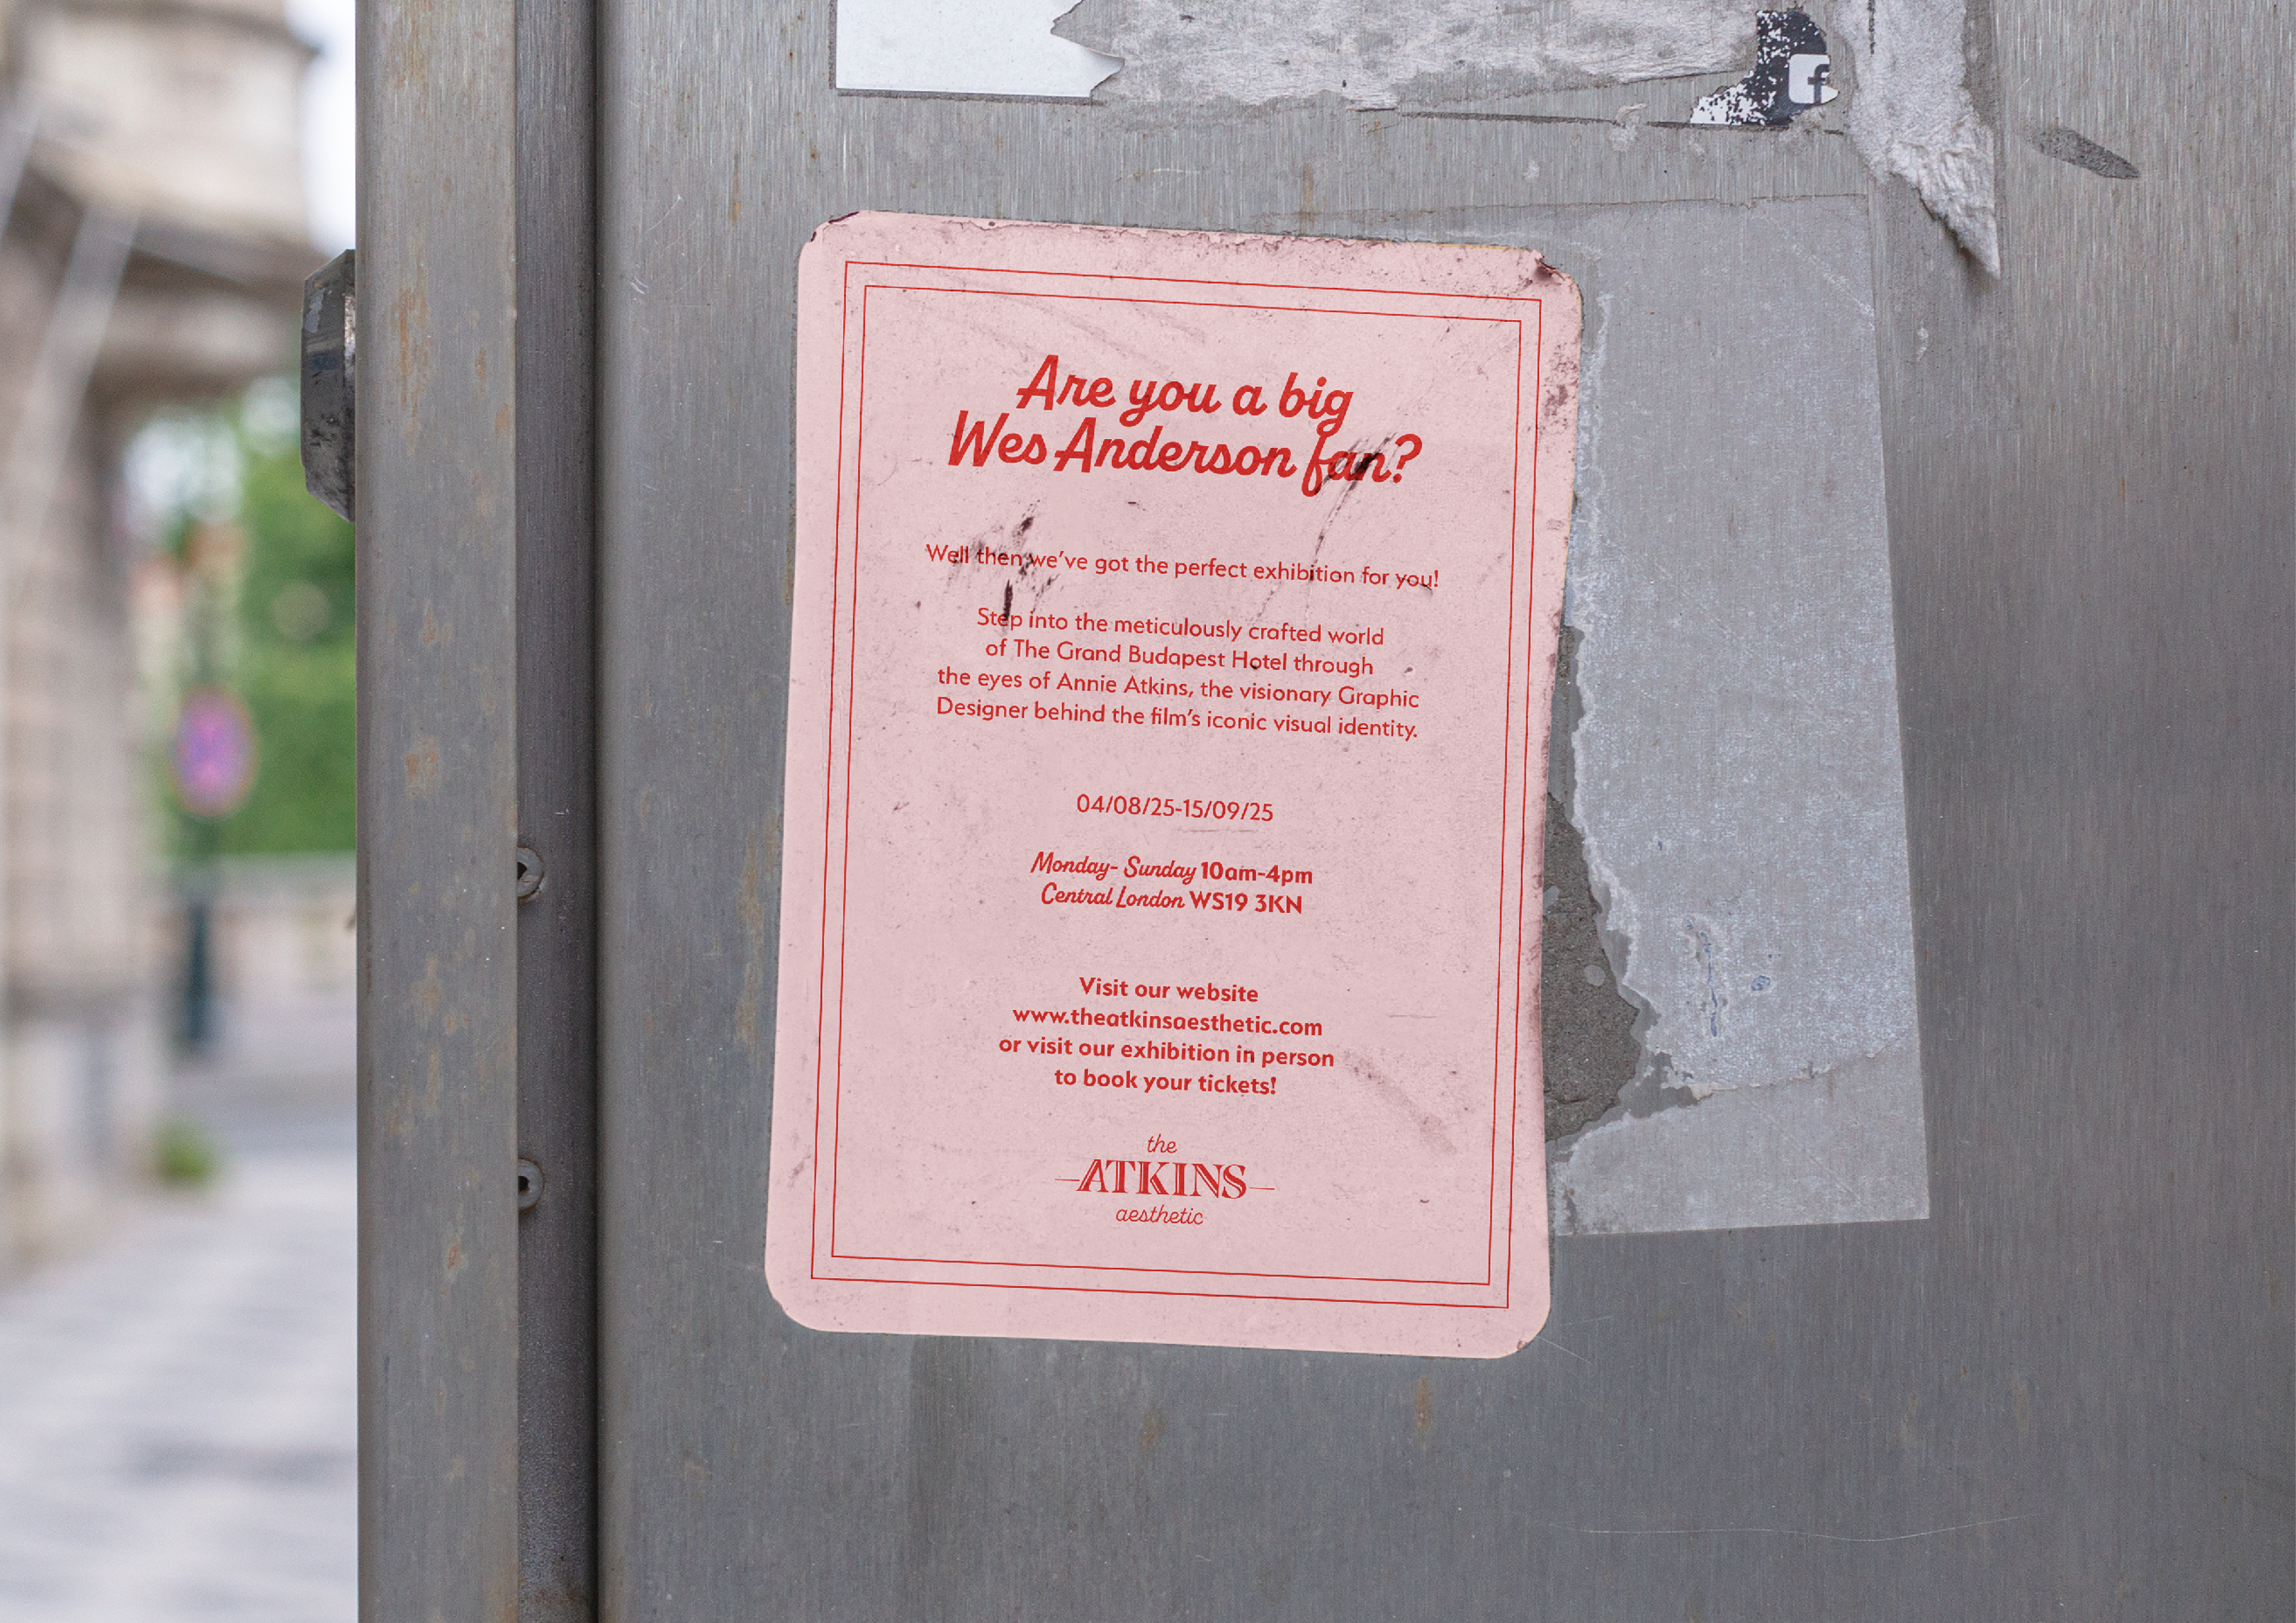 Are you a big
Wes Anderson fan?
Well then we've got the perfect exhibition for you!
Step into the meticulously crafted world
of The Grand Budapest Hotel through
the eyes of Annie Atkins, the visionary Graphic
Designer behind the film's iconic visual identity.
04/08/25-15/09/25
Monday- Sunday 10am-4pm
Central London WS19 3KN
Visit our website
www.theatkinsaesthetic.com
or visit our exhibition in person
to book your tickets!
the
ATKINS
aesthetic